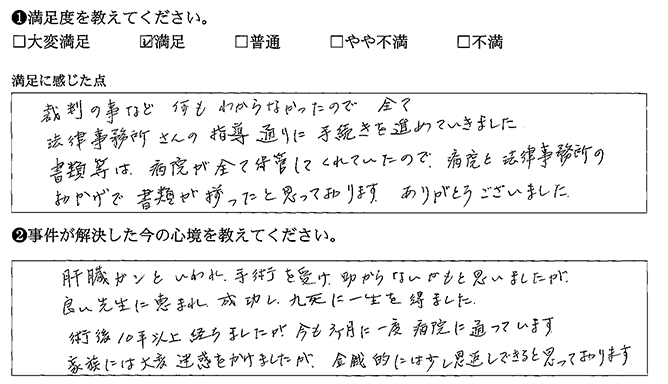 ❶満足度を教えてください。
□大変満足 ☑満足 □普通 □やや不満 □不満
満足に感じた点
裁判の事など 何も わからなかったので 全て
法律事務所さんの指導通りに手続きを進めていきました
書類等は、病院が全て保管してくれていたので、病院と法律事務所の
おかげで書類が揃ったと思っております。ありがとうございました。
❷事件が解決した今の心境を教えてください。
肝臓ガンと いわれ、手術を受け、助からないかもと思いましたが、
良い先生に恵まれ、成功し、九死に一生を得ました。
術後10年以上経ちましたが、今も3ヶ月に一度 病院に通っています
家族には大変迷惑をかけましたが、金銭的には少し恩返しできると思っております